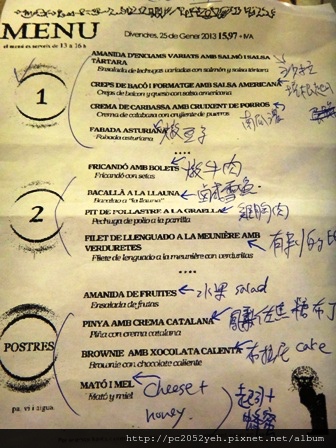 MENU
el menú es serveix de 13 a 16 h
Divendres, 25 de Gener 2013 15,97 + IVA
1
AMANIDA D'ENCIAMS VARIATS AMB SALMÓ I SALSA
TÀRTARA
Ensalada de lechugas variadas con salmón y salsa tártara
沙拉
CREPS DE BACÓ I FORMATGE AMB SALSA AMERICANA
Creps de bacon y queso con salsa americana
CREMA DE CARBASSA AMB CRUIXENT DE PORROS
Crema de calabaza con crujiente de puerros
南瓜湯
FABADA ASTURIANA
Fabada asturiana
豆子
****
2
FRICANDÓ AMB BOLETS
Fricandó con setas
牛肉
BACALLÀ A LA LLAUNA
Bacalao a "la llauna"
鱈魚
PIT DE POLLASTRE A LA GRAELLA
Pechuga de pollo a la parrilla
雞胸肉
FILET DE LLENGUADO A LA MEUNIÈRE AMB
VERDURETES
Filete de lenguado a la meunière con verduritas
****
POSTRES
AMANIDA DE FRUITES
Ensalada de frutas
水果 salad
PINYA AMB CREMA CATALANA
Piña con crema catalana
焦糖布丁
BROWNIE AMB XOCOLATA CALENTA
Brownie con chocolate caliente
布拉尼 cake
MATÓ I MEL
Mató y miel
Cheese +
honey
起司 +
蜂蜜
pa, vi i aigua
http://pc2052yeh.pixnet.net/album